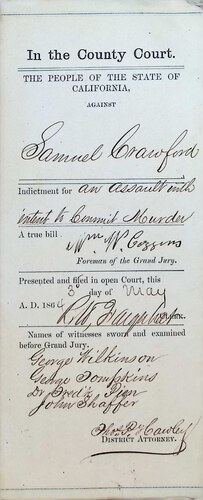 In the County Court.
THE PEOPLE OF THE STATE OF
CALIFORNIA,
AGAINST
Samuel Crawford
Indictment for an assault with
intent to Commit Murder
A true bill.
Wm W. Coggins
Foreman of the Grand Jury.
Presented and filed in open Court, this
3d day of May
A. D. 186
CLERK.
Names of witnesses sworn and examined
before Grand Jury.
George Wilkinson
George Tompkins
Dr Fred'k
John Shaffer
Thos P Hawley
DISTRICT ATTORNEY.